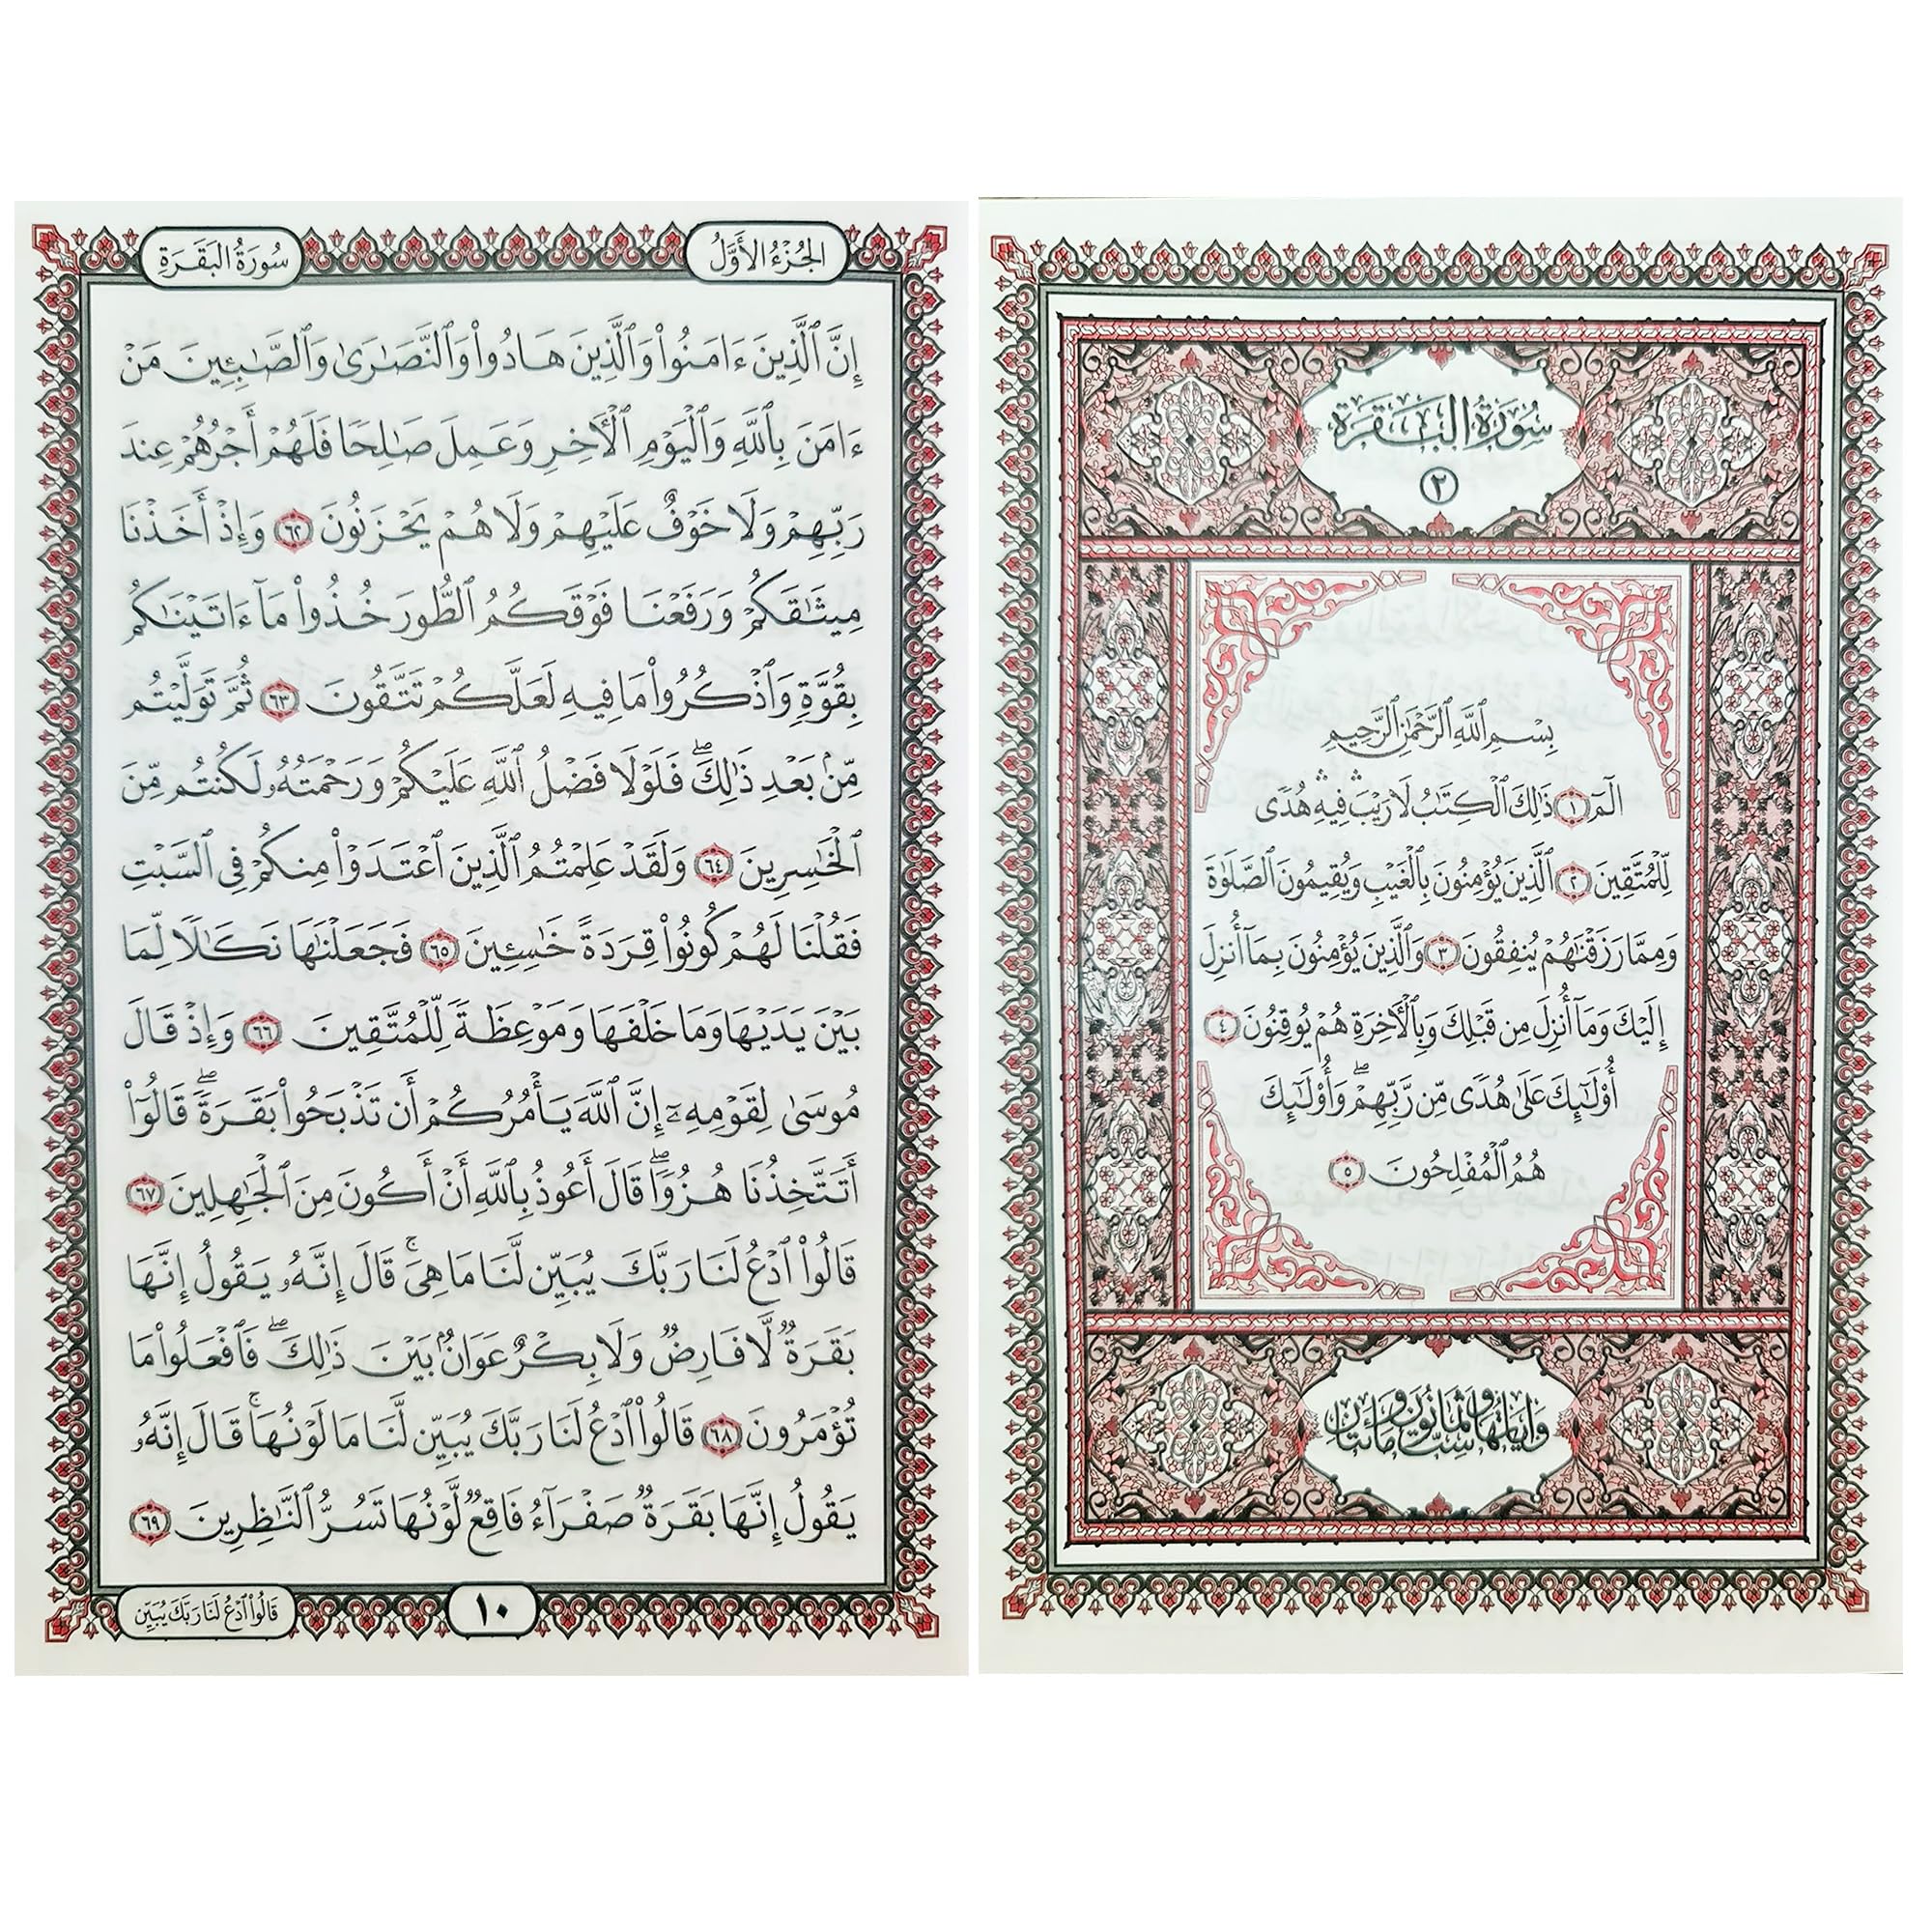 سُورَةُ البَقَرَةِ
٢
بِسْمِ ٱللَّهِ ٱلرَّحْمَٰنِ ٱلرَّحِيمِ
الٓمٓ ١ ذَٰلِكَ ٱلْكِتَٰبُ لَا رَيْبَ ۛ فِيهِ ۛ هُدًى
لِّلْمُتَّقِينَ ٢ ٱلَّذِينَ يُؤْمِنُونَ بِٱلْغَيْبِ وَيُقِيمُونَ ٱلصَّلَوٰةَ
وَمِمَّا رَزَقْنَٰهُمْ يُنفِقُونَ ٣ وَٱلَّذِينَ يُؤْمِنُونَ بِمَآ أُنزِلَ
إِلَيْكَ وَمَآ أُنزِلَ مِن قَبْلِكَ وَبِٱلْأَخِرَةِ هُمْ يُوقِنُونَ ٤
أُو۟لَٰٓئِكَ عَلَىٰ هُدًى مِّن رَّبِّهِمْ ۖ وَأُو۟لَٰٓئِكَ
هُمُ ٱلْمُفْلِحُونَ ٥
وَآيَاتُهَا سِتٌّ وَثَمَانُونَ وَمِائَتَانِ
الجُزْءُ الأَوَّلُ
سُورَةُ البَقَرَةِ
إِنَّ ٱلَّذِينَ ءَامَنُوا۟ وَٱلَّذِينَ هَادُوا۟ وَٱلنَّصَٰرَىٰ وَٱلصَّٰبِـِٔينَ مَنْ
ءَامَنَ بِٱللَّهِ وَٱلْيَوْمِ ٱلْأَخِرِ وَعَمِلَ صَٰلِحًا فَلَهُمْ أَجْرُهُمْ عِندَ
رَبِّهِمْ وَلَا خَوْفٌ عَلَيْهِمْ وَلَا هُمْ يَحْزَنُونَ ٦٢ وَإِذْ أَخَذْنَا
مِيثَٰقَكُمْ وَرَفَعْنَا فَوْقَكُمُ ٱلطُّورَ خُذُوا۟ مَآ ءَاتَيْنَٰكُم
بِقُوَّةٍ وَٱذْكُرُوا۟ مَا فِيهِ لَعَلَّكُمْ تَتَّقُونَ ٦٣ ثُمَّ تَوَلَّيْتُم
مِّنۢ بَعْدِ ذَٰلِكَ ۖ فَلَوْلَا فَضْلُ ٱللَّهِ عَلَيْكُمْ وَرَحْمَتُهُۥ لَكُنتُم مِّنَ
ٱلْخَٰسِرِينَ ٦٤ وَلَقَدْ عَلِمْتُمُ ٱلَّذِينَ ٱعْتَدَوْا۟ مِنكُمْ فِى ٱلسَّبْتِ
فَقُلْنَا لَهُمْ كُونُوا۟ قِرَدَةً خَٰسِـِٔينَ ٦٥ فَجَعَلْنَٰهَا نَكَٰلًا لِّمَا
بَيْنَ يَدَيْهَا وَمَا خَلْفَهَا وَمَوْعِظَةً لِّلْمُتَّقِينَ ٦٦ وَإِذْ قَالَ
مُوسَىٰ لِقَوْمِهِۦٓ إِنَّ ٱللَّهَ يَأْمُرُكُمْ أَن تَذْبَحُوا۟ بَقَرَةً ۖ قَالُوٓا۟
أَتَتَّخِذُنَا هُزُوًا ۖ قَالَ أَعُوذُ بِٱللَّهِ أَنْ أَكُونَ مِنَ ٱلْجَٰهِلِينَ ٦٧
قَالُوا۟ ٱدْعُ لَنَا رَبَّكَ يُبَيِّن لَّنَا مَا هِىَ ۚ قَالَ إِنَّهُۥ يَقُولُ إِنَّهَا
بَقَرَةٌ لَّا فَارِضٌ وَلَا بِكْرٌ عَوَانٌۢ بَيْنَ ذَٰلِكَ ۖ فَٱفْعَلُوا۟ مَا
تُؤْمَرُونَ ٦٨ قَالُوا۟ ٱدْعُ لَنَا رَبَّكَ يُبَيِّن لَّنَا مَا لَوْنُهَا ۚ قَالَ إِنَّهُۥ
يَقُولُ إِنَّهَا بَقَرَةٌ صَفْرَآءُ فَاقِعٌ لَّوْنُهَا تَسُرُّ ٱلنَّٰظِرِينَ ٦٩
١٠
قَالُوا۟ ٱدْعُ لَنَا رَبَّكَ يُبَيِّن